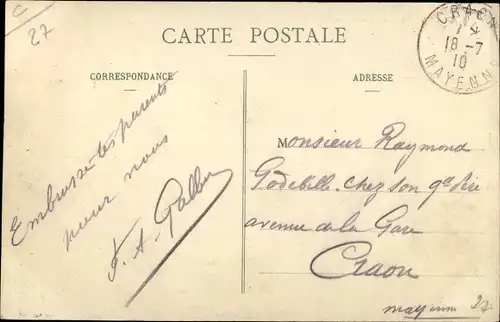 C
27
CARTE POSTALE
CRAON
18-7
10
MAYENNE
CORRESPONDANCE
ADRESSE
Embrasse tes parents
pour nous
F. A.
Monsieur Raymond
chez son gd père
avenue de la Gare
Craon
mayenne
27